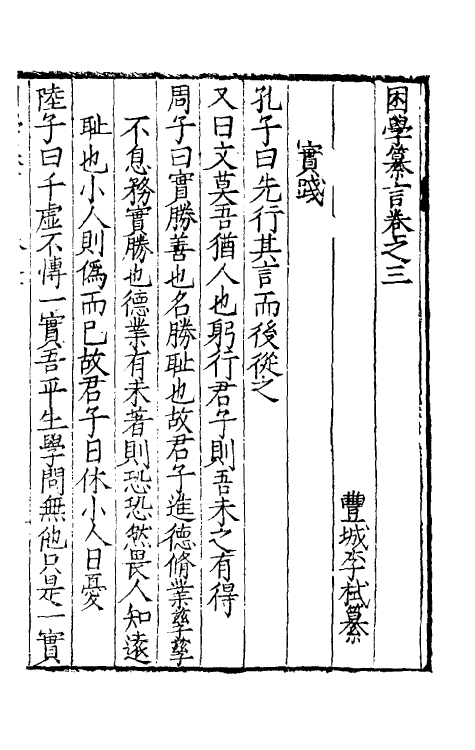 困學纂言卷之三
豐城李栻纂
實踐
孔子曰先行其言而後從之
又曰文莫吾猶人也躬行君子則吾未之有得
周子曰實勝善也名勝耻也故君子進德脩業孳孳
不息務實勝也德業有未著則恐恐然畏人知遠
耻也小人則僞而已故君子日休小人日憂
陸子曰千虛不博一實吾平生學問無他只是一實